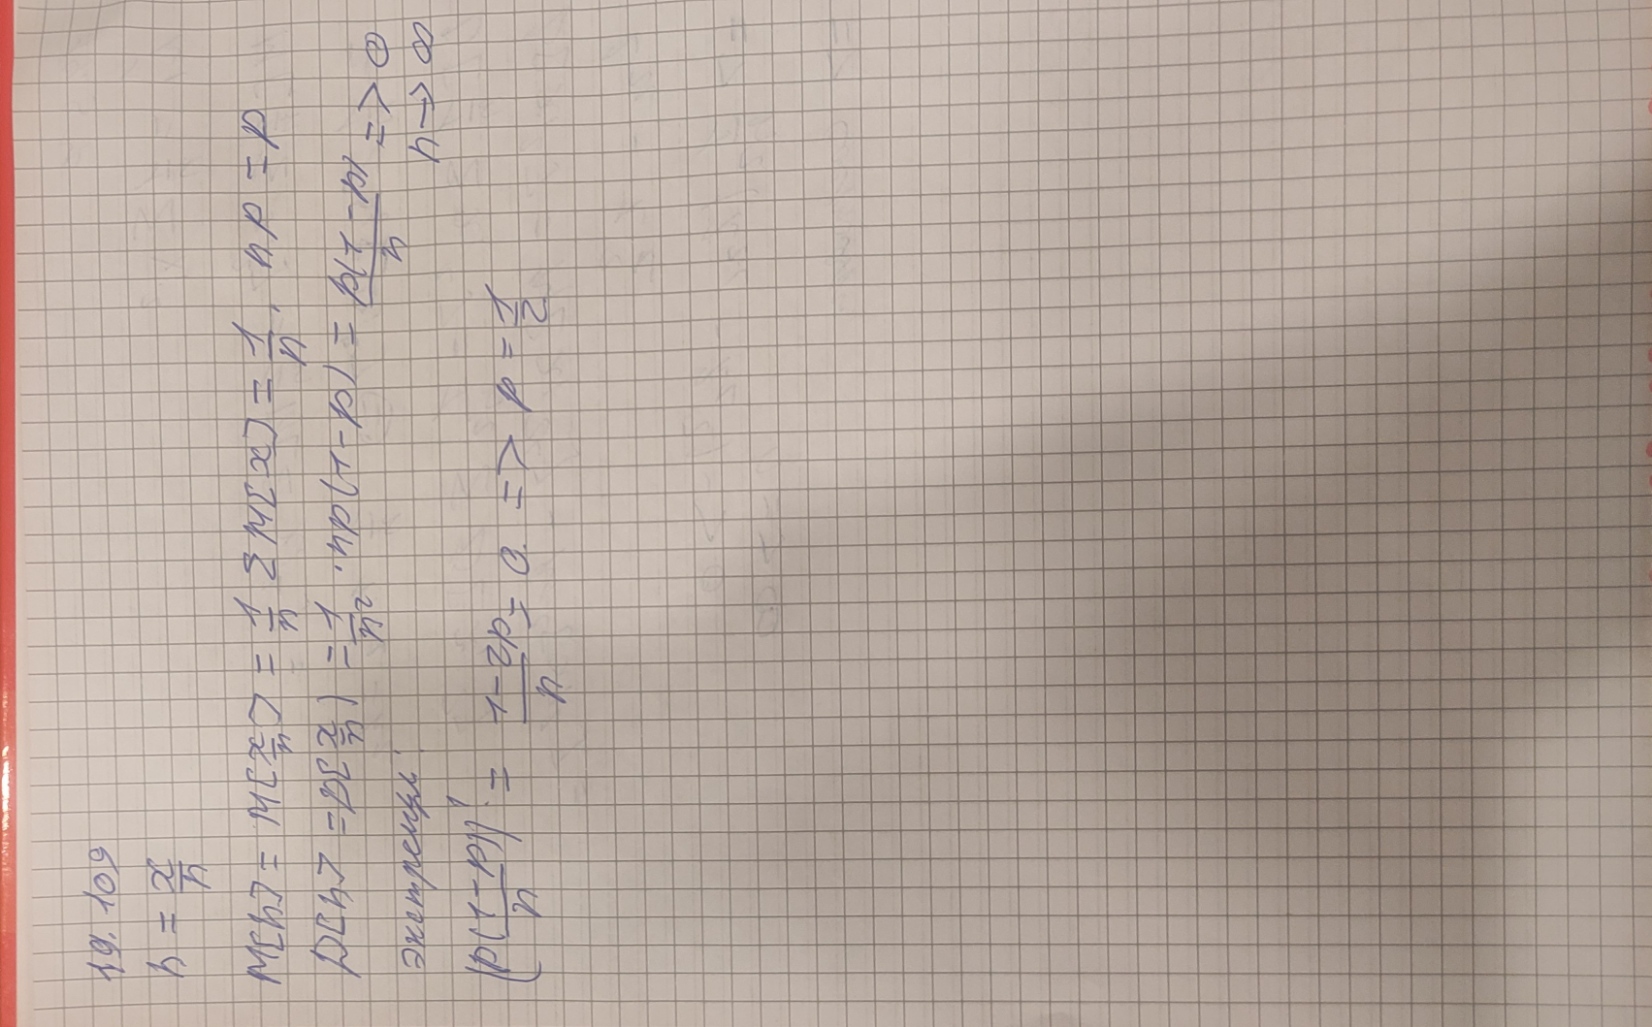 19.109
h = x/n
M[h] = M[x/n] = 1/n Σ M[x] = 1/n · np = p
D[h] = D[x/n] = 1/n² · np(1-p) = p(1-p)/n => 0
n → ∞
экстремум:
(p(1-p)/n)' = 1-2p/n = 0 => p = 1/2